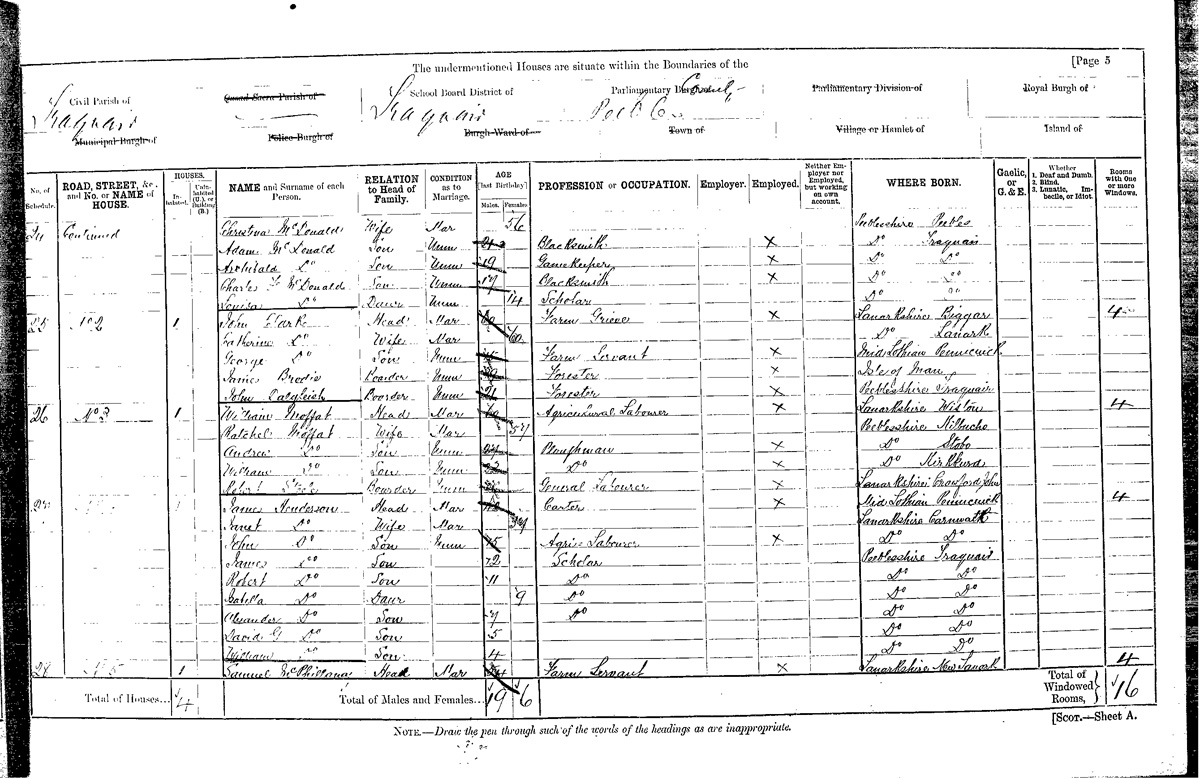 The undermentioned Houses are situate within the Boundaries of the [Page 5
Civil Parish of Quoad Sacra Parish of School Board District of Parliamentary Burgh County Parliamentary Division of Royal Burgh of
Traquair Traquair Peebles
Municipal Burgh of Police Burgh of Burgh Ward of Town of Village or Hamlet of Island of
No. of Schedule. ROAD, STREET, &c., and No. or NAME of HOUSE. HOUSES. Inhabited. Uninhabited (U.), or Building (B.) NAME and Surname of each Person. RELATION to Head of Family. CONDITION as to Marriage. AGE [last Birthday] Males. Females. PROFESSION or OCCUPATION. Employer. Employed. Neither Employer nor Employed, but working on own account. WHERE BORN. Gaelic, or G. & E. Whether 1. Deaf and Dumb. 2. Blind. 3. Lunatic, Imbecile, or Idiot. Rooms with One or more Windows.
24 Continued Christina McDonald Wife Mar 56 Peeblesshire Peebles
Adam McDonald Son Unm Blacksmith X Do Traquair
Archibald Do Son Unm 19 Gamekeeper X Do Do
Charles McDonald Son Unm 17 Blacksmith X Do Do
Louisa Do Daur Unm 14 Scholar Do Do
25 No 2 1 John Clark Head Mar Farm Grieve X Lanarkshire Biggar 4
Catherine Do Wife Mar 60 Do Lanark
George Do Son Unm Farm Servant X Mid Lothian Pennicuick
James Brodie Boarder Unm Forester X Isle of Man
John Dalgleish Boorder Unm Forester X Peeblesshire Traquair
26 No 3 1 William Moffat Head Mar Agricultural Labourer X Lanarkshire Wiston 4
Ratchel Moffat Wife Mar 57 Peeblesshire Kilbucho
Andrew Do Son Unm Ploughman X Do Stobo
William Do Son Unm Do X Do Kirkkurd
Robert Boarder Unm General Labourer X Lanarkshire Crawford
27 James Henderson Head Mar Carter X Mid Lothian Pennicuick 4
Janet Do Wife Mar Lanarkshire Carnwath
John Do Son Unm 15 Agric Labourer X Do Do
James Do Son 12 Scholar Peeblesshire Traquair
Robert Do Son 11 Do Do Do
Isabella Do Daur 9 Do Do Do
Alexander Do Son 7 Do Do Do
David G Do Son 5 Do Do
William Do Son 4 Do Do
28 1 Samuel Head Mar Farm Servant X Lanarkshire New Lanark 4
Total of Houses... 4 Total of Males and Females... 19 6 Total of Windowed Rooms, 16
[SCOT.—Sheet A.
NOTE.—Draw the pen through such of the words of the headings as are inappropriate.